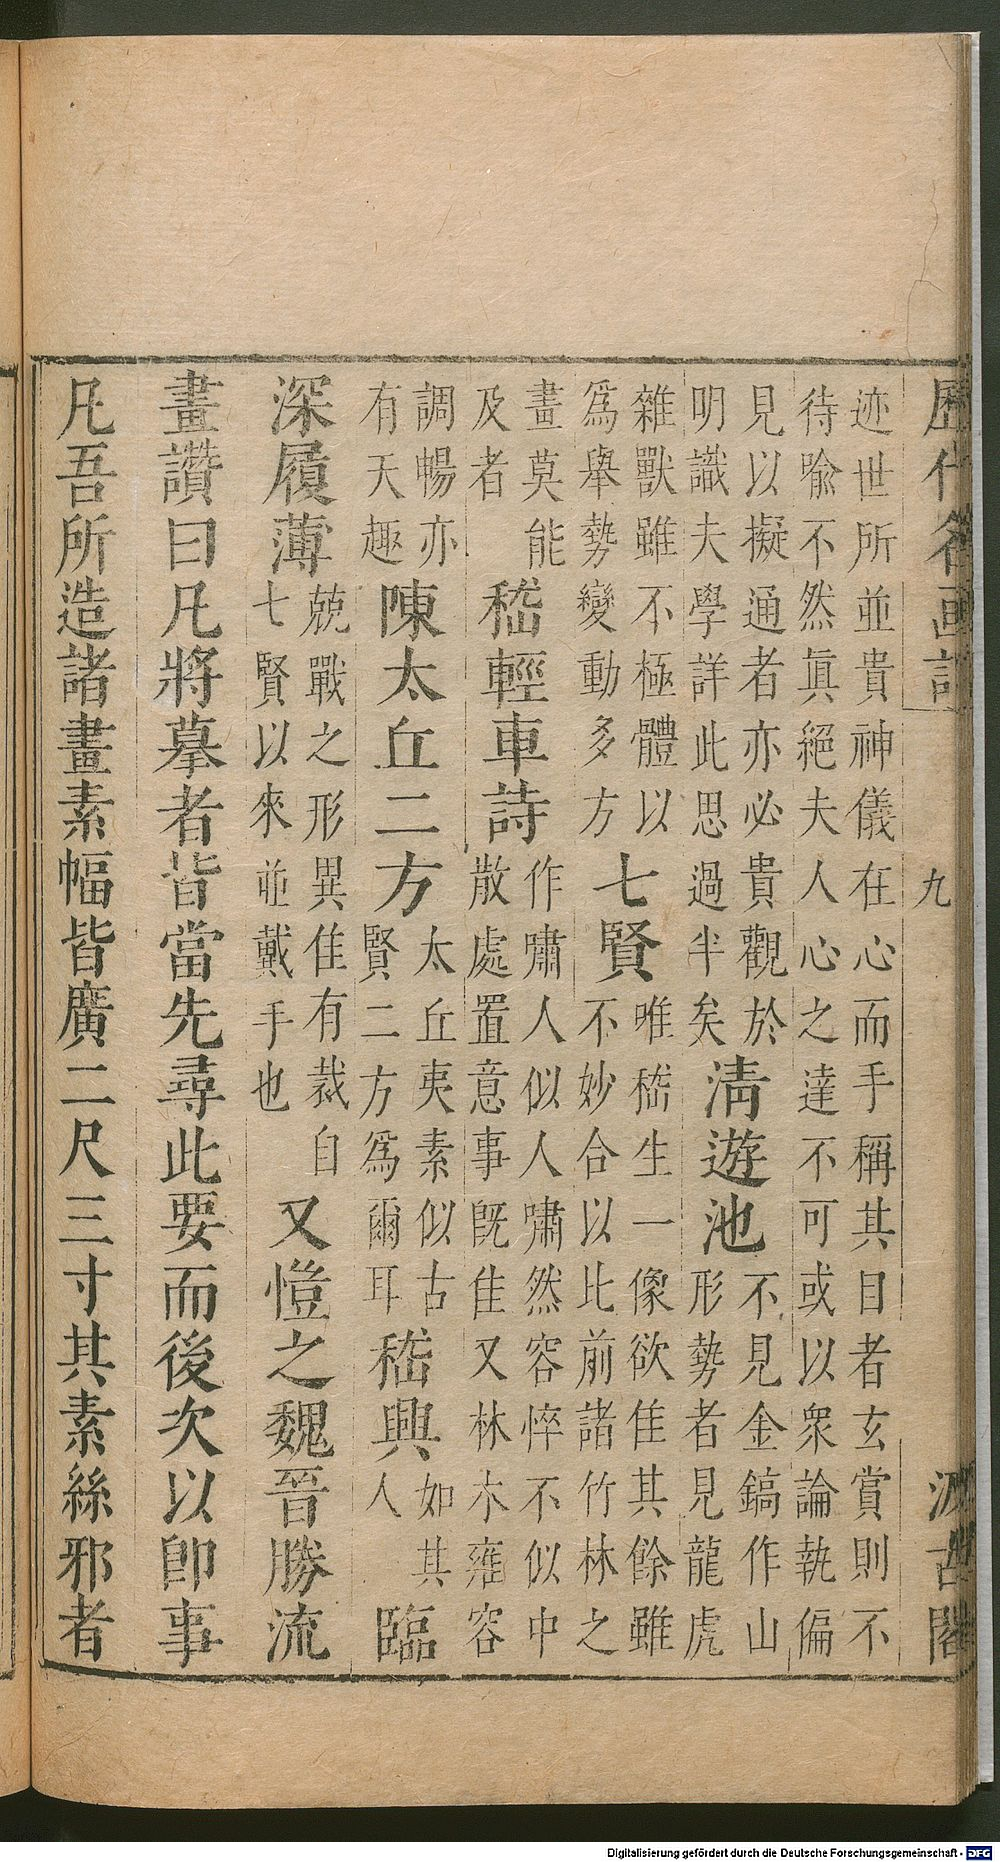 歷代名画記
九
汲古閣
迹世所並貴神儀在心而手稱其目者玄賞則不
待喻不然眞絕夫人心之達不可或以衆論執偏
見以擬通者亦必貴觀於
明識夫學詳此思過半矣
淸遊池
不見金鎬作山
形勢者見龍虎
雜獸雖不極體以
爲舉勢變動多方
七賢
唯嵇生一像欲佳其餘雖
不妙合以比前諸竹林之
畫莫能
及者
嵇輕車詩
作嘯人似人嘯然容悴不似中
散處置意事旣佳又林木雍容
調暢亦
有天趣
陳太丘二方
太丘夷素似古
賢二方爲爾耳
嵇興
如其
人
臨
深履薄
兢戰之形異佳有裁自
七賢以來並戴手也
又愷之魏晉勝流
畫讚曰凡將摹者皆當先尋此要而後次以卽事
凡吾所造諸畫素幅皆廣二尺三寸其素絲邪者
Digitalisierung gefördert durch die Deutsche Forschungsgemeinschaft - DFG